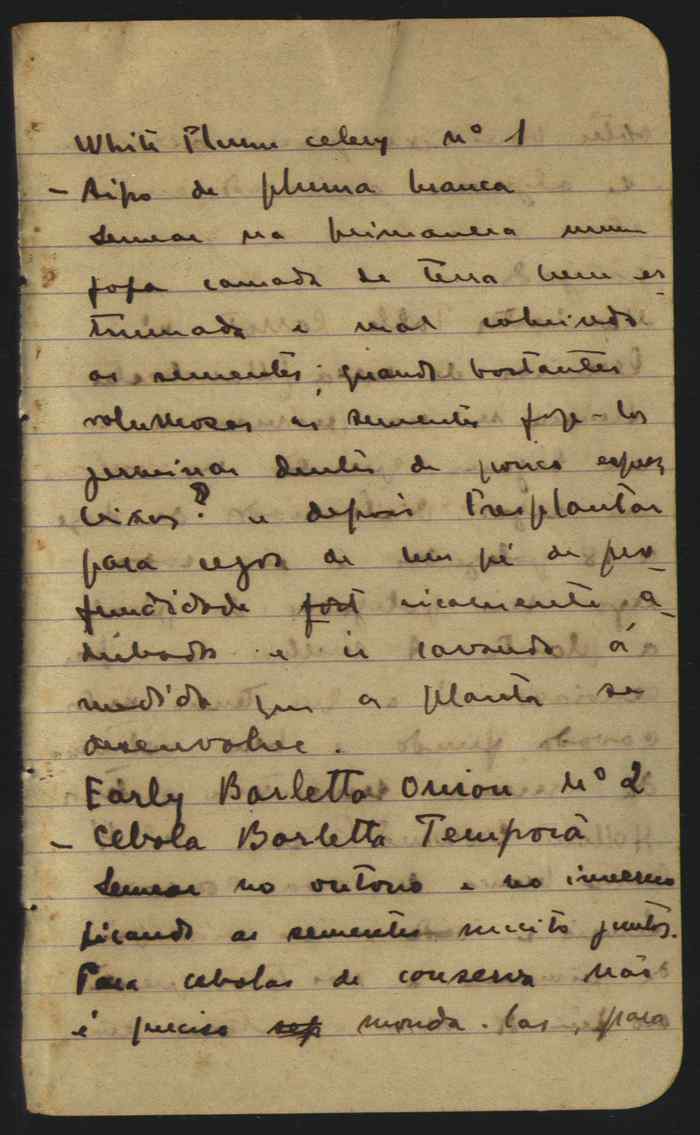 White Plume celery Nº 1
- Aipo de pluma branca
Semear na primavera numa
fofa camada de terra bem es-
trumada e mal cobrindo
as sementes; quando bastantes
volumosas as sementes faze-los
germinar dentes de pouco
? e depois tresplantar
para regos de um pé de pro
fundidade ricamente a-
dubada e ir cavando á
medida que a planta se
desenvolve.
Early Barletta Onion Nº 2
- Cebola Barletta Temporã
Semear no outono e no inverno
ficando as sementes muito juntas.
Para cebolas de conserva não
é preciso monda-las, para